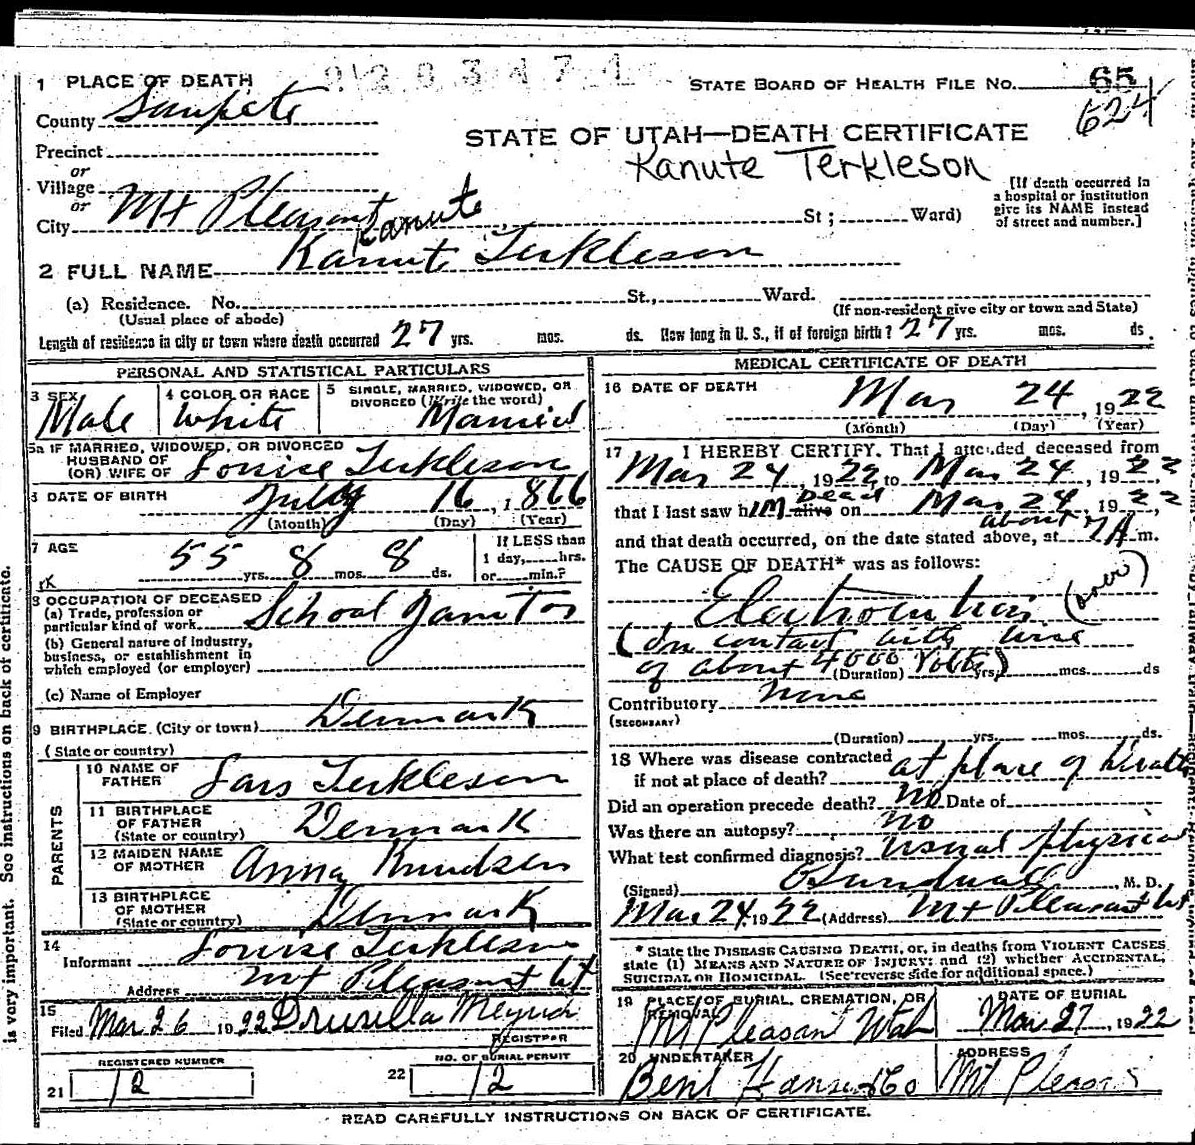 1 PLACE OF DEATH
STATE BOARD OF HEALTH FILE No. 65
624
County Sanpete
STATE OF UTAH—DEATH CERTIFICATE
Kanute Terkleson
Precinct
or
Village
or
City Mt Pleasant St; Ward)
[If death occurred in
a hospital or institution
give its NAME instead
of street and number.]
Kanute
2 FULL NAME Kanute Terkleson
(a) Residence. No. St., Ward.
(Usual place of abode) (If non-resident give city or town and State)
Length of residence in city or town where death occurred 27 yrs. mos. ds. How long in U. S., if of foreign birth? 27 yrs. mos. ds.
PERSONAL AND STATISTICAL PARTICULARS
3 SEX Male
4 COLOR OR RACE White
5 SINGLE, MARRIED, WIDOWED, OR
DIVORCED (Write the word)
Married
5a IF MARRIED, WIDOWED, OR DIVORCED
HUSBAND OF
(OR) WIFE OF Louise Terkleson
6 DATE OF BIRTH July 16, 1866
(Month) (Day) (Year)
7 AGE 55 yrs. 8 mos. 8 ds.
If LESS than
1 day, hrs.
or min.?
8 OCCUPATION OF DECEASED
(a) Trade, profession or
particular kind of work School Janitor
(b) General nature of industry,
business, or establishment in
which employed (or employer)
(c) Name of Employer
9 BIRTHPLACE (City or town) Denmark
(State or country)
PARENTS
10 NAME OF
FATHER Lars Terkleson
11 BIRTHPLACE
OF FATHER
(State or country) Denmark
12 MAIDEN NAME
OF MOTHER Anna Knudsen
13 BIRTHPLACE
OF MOTHER
(State or country) Denmark
14
Informant Louise Terkleson
Address Mt Pleasant Ut
15
Filed Mar 26 1922 Drusilla Meyrick
REGISTRAR
REGISTERED NUMBER
21 12
NO. OF BURIAL PERMIT
22 12
MEDICAL CERTIFICATE OF DEATH
16 DATE OF DEATH Mar 24, 1922
(Month) (Day) (Year)
17 I HEREBY CERTIFY. That I attended deceased from
Mar 24, 1922, to Mar 24, 1922
that I last saw him alive Dead on Mar 24, 1922,
and that death occurred, on the date stated above, at about 7 A m.
The CAUSE OF DEATH* was as follows:
Electrocution (over)
(On contact with wire
of about 4000 Volts)
(Duration) yrs. mos. ds
Contributory None
(SECONDARY)
(Duration) yrs. mos. ds.
18 Where was disease contracted
if not at place of death? at place of Death
Did an operation precede death? No Date of
Was there an autopsy? No
What test confirmed diagnosis? Usual physical
(Signed) , M. D.
Mar 24, 1922 (Address) Mt Pleasant Ut
* State the DISEASE CAUSING DEATH, or, in deaths from VIOLENT CAUSES,
state (1) MEANS AND NATURE OF INJURY; and (2) whether ACCIDENTAL,
SUICIDAL, OR HOMICIDAL. (See reverse side for additional space.)
19 PLACE OF BURIAL, CREMATION, OR
REMOVAL
Mt Pleasant Utah
DATE OF BURIAL
Mar 27, 1922
20 UNDERTAKER
Bent Hansen & Co
ADDRESS
Mt Pleasant
READ CAREFULLY INSTRUCTIONS ON BACK OF CERTIFICATE.
is very important. See instructions on back of certificate.